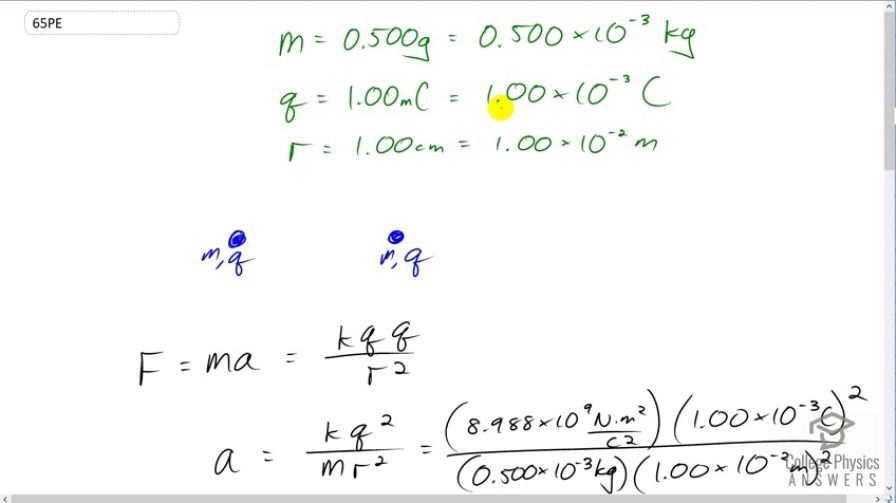 65PE
m = 0.500g = 0.500 × 10⁻³ kg
q = 1.00mC = 1.00 × 10⁻³ C
r = 1.00cm = 1.00 × 10⁻² m
m, q m, q
F = ma = kqq / r²
a = kq² / mr² = (8.988×10⁹ N·m²/C²) (1.00×10⁻³C)² / (0.500×10⁻³kg)(1.00×10⁻²m)²
College Physics
ANSWERS